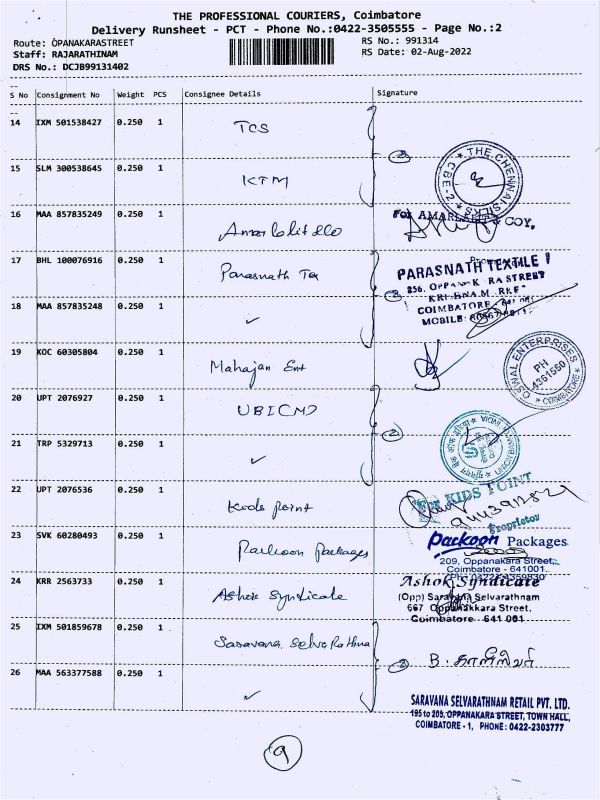 THE PROFESSIONAL COURIERS, Coimbatore
Delivery Runsheet - PCT - Phone No.:0422-3505555 - Page No.:2
Route: OPANAKARASTREET
RS No.: 991314
Staff: RAJARATHINAM
RS Date: 02-Aug-2022
DRS No.: DCJB99131402
S No Consignment No Weight PCS Consignee Details Signature
14 IXM 501538427 0.250 1 TCS
15 SLM 300538645 0.250 1 KTM
THE CHENNAI SILKS
CBE-2
16 MAA 857835249 0.250 1
For AMARLAL & COY,
17 BHL 100076916 0.250 1 Parasnath Tex
PARASNATH TEXTILE
856, OPPANAK RA STREET
COIMBATORE
MOBILE:
18 MAA 857835248 0.250 1 ✓
19 KOC 60305804 0.250 1 Mahajan Ent
OSWAL ENTERPRISES
PH
4361560
COIMBATORE
20 UPT 2076927 0.250 1 UBICMD
21 TRP 5329713 0.250 1 ✓
2
22 UPT 2076536 0.250 1 Kids Point
KIDS POINT
Proprietor
23 SVK 60280493 0.250 1 Packoon Packages
Packoon Packages
209, Oppanakara Street,
Coimbatore - 641001.
24 KRR 2563733 0.250 1 Ashok Syndicate
Ashok Syndicate
(Opp) Saravana Selvarathnam
667 Oppanakkara Street,
Coimbatore 641 001
25 IXM 501859678 0.250 1 Saravana Selva Rathna
2
26 MAA 563377588 0.250 1 ✓
SARAVANA SELVARATHNAM RETAIL PVT. LTD.
195 to 205, OPPANAKARA STREET, TOWN HALL,
COIMBATORE - 1, PHONE: 0422-2303777
9